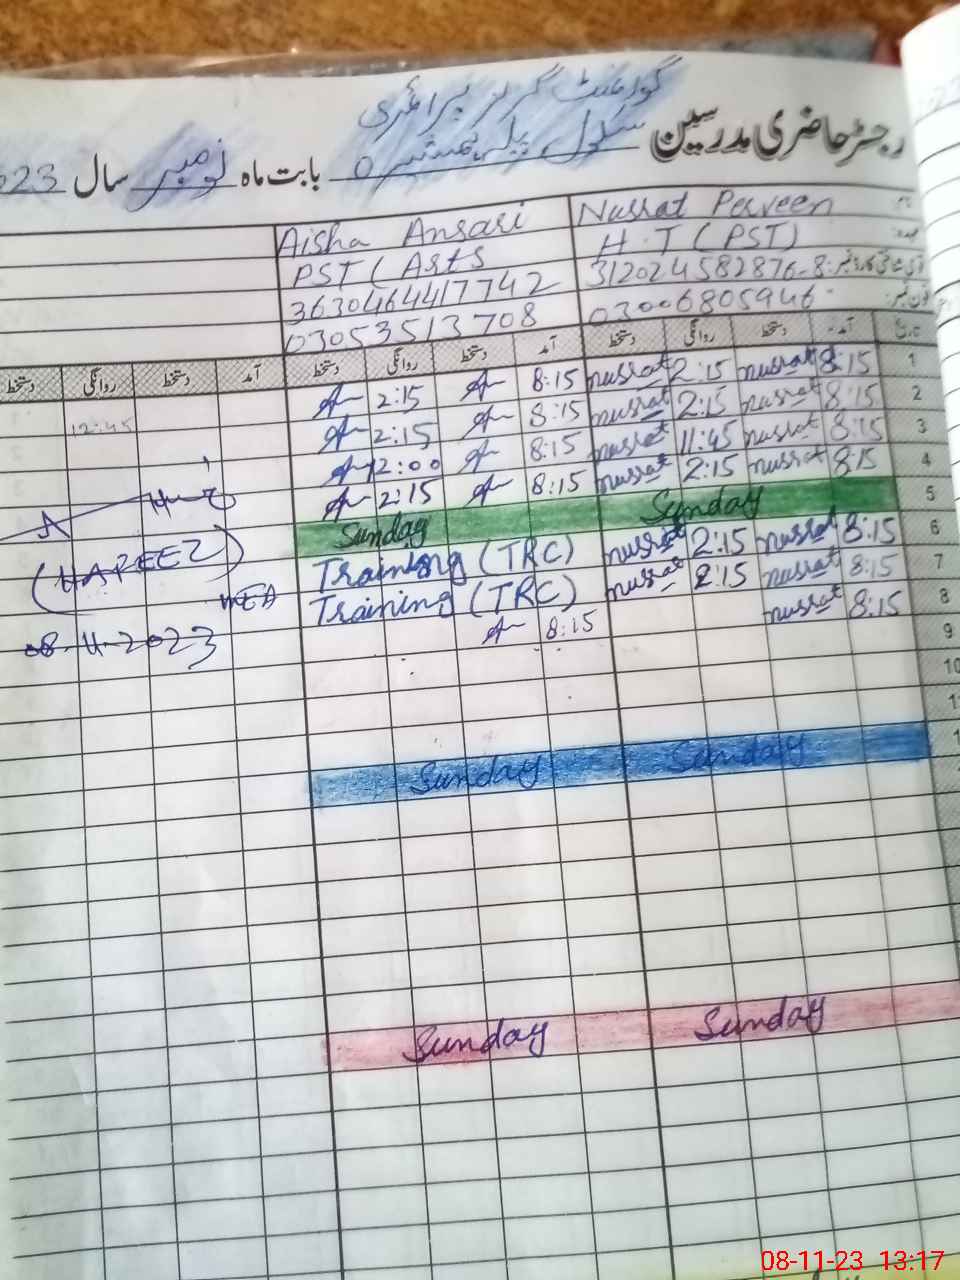 گورنمنٹ گرلز پرائمری
رجسٹر حاضری مدرسین سکول
بابت ماہ نومبر سال 023
Nusrat Perveen Aisha Ansari
H.T (PST) PST (Arts
312024582876-8 3630464417742
03006805946 03053513708
تاریخ آمد دستخط روانگی دستخط آمد دستخط روانگی دستخط آمد دستخط روانگی دستخط
1 8:15 nusrat 2:15 nusrat 8:15 2:15
2 8:15 nusrat 2:15 nusrat 8:15 2:15 12:45
3 8:15 nusrat 11:45 nusrat 8:15 12:00
4 8:15 nusrat 2:15 nusrat 8:15 2:15
5 Sunday Sunday
6 8:15 nusrat 2:15 nusrat Training (TRC)
7 8:15 nusrat 2:15 nusrat Training (TRC)
8 8:15 nusrat 8:15
(HAFEEZ)
MEA
08-11-2023
9
10
Sunday Sunday
Sunday Sunday
08-11-23 13:17